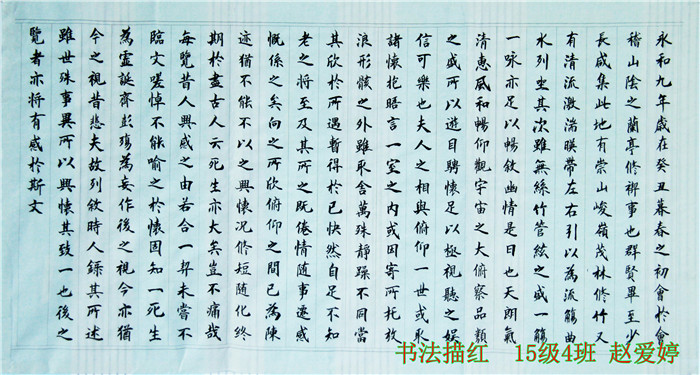 永和九年歲在癸丑暮春之初會於會
稽山陰之蘭亭修禊事也群賢畢至少
長咸集此地有崇山峻嶺茂林修竹又
有清流激湍暎帶左右引以為流觴曲
水列坐其次雖無絲竹管絃之盛一觴
一咏亦足以暢敘幽情是日也天朗氣
清惠風和暢仰觀宇宙之大俯察品類
之盛所以遊目騁懷足以極視聽之娛
信可樂也夫人之相與俯仰一世或取
諸懷抱晤言一室之內或因寄所托放
浪形骸之外雖取舍萬殊靜躁不同當
其欣於所遇暫得於己快然自足不知
老之將至及其所之既倦情隨事遷感
慨係之矣向之所欣俯仰之間已為陳
迹猶不能不以之興懷況修短隨化終
期於盡古人云死生亦大矣豈不痛哉
每覽昔人興感之由若合一契未嘗不
臨文嗟悼不能喻之於懷固知一死生
為虛誕齊彭殤為妄作後之視今亦猶
今之視昔悲夫故列敘時人錄其所述
雖世殊事異所以興懷其致一也後之
覽者亦將有感於斯文
书法描红 15级4班 赵爱婷